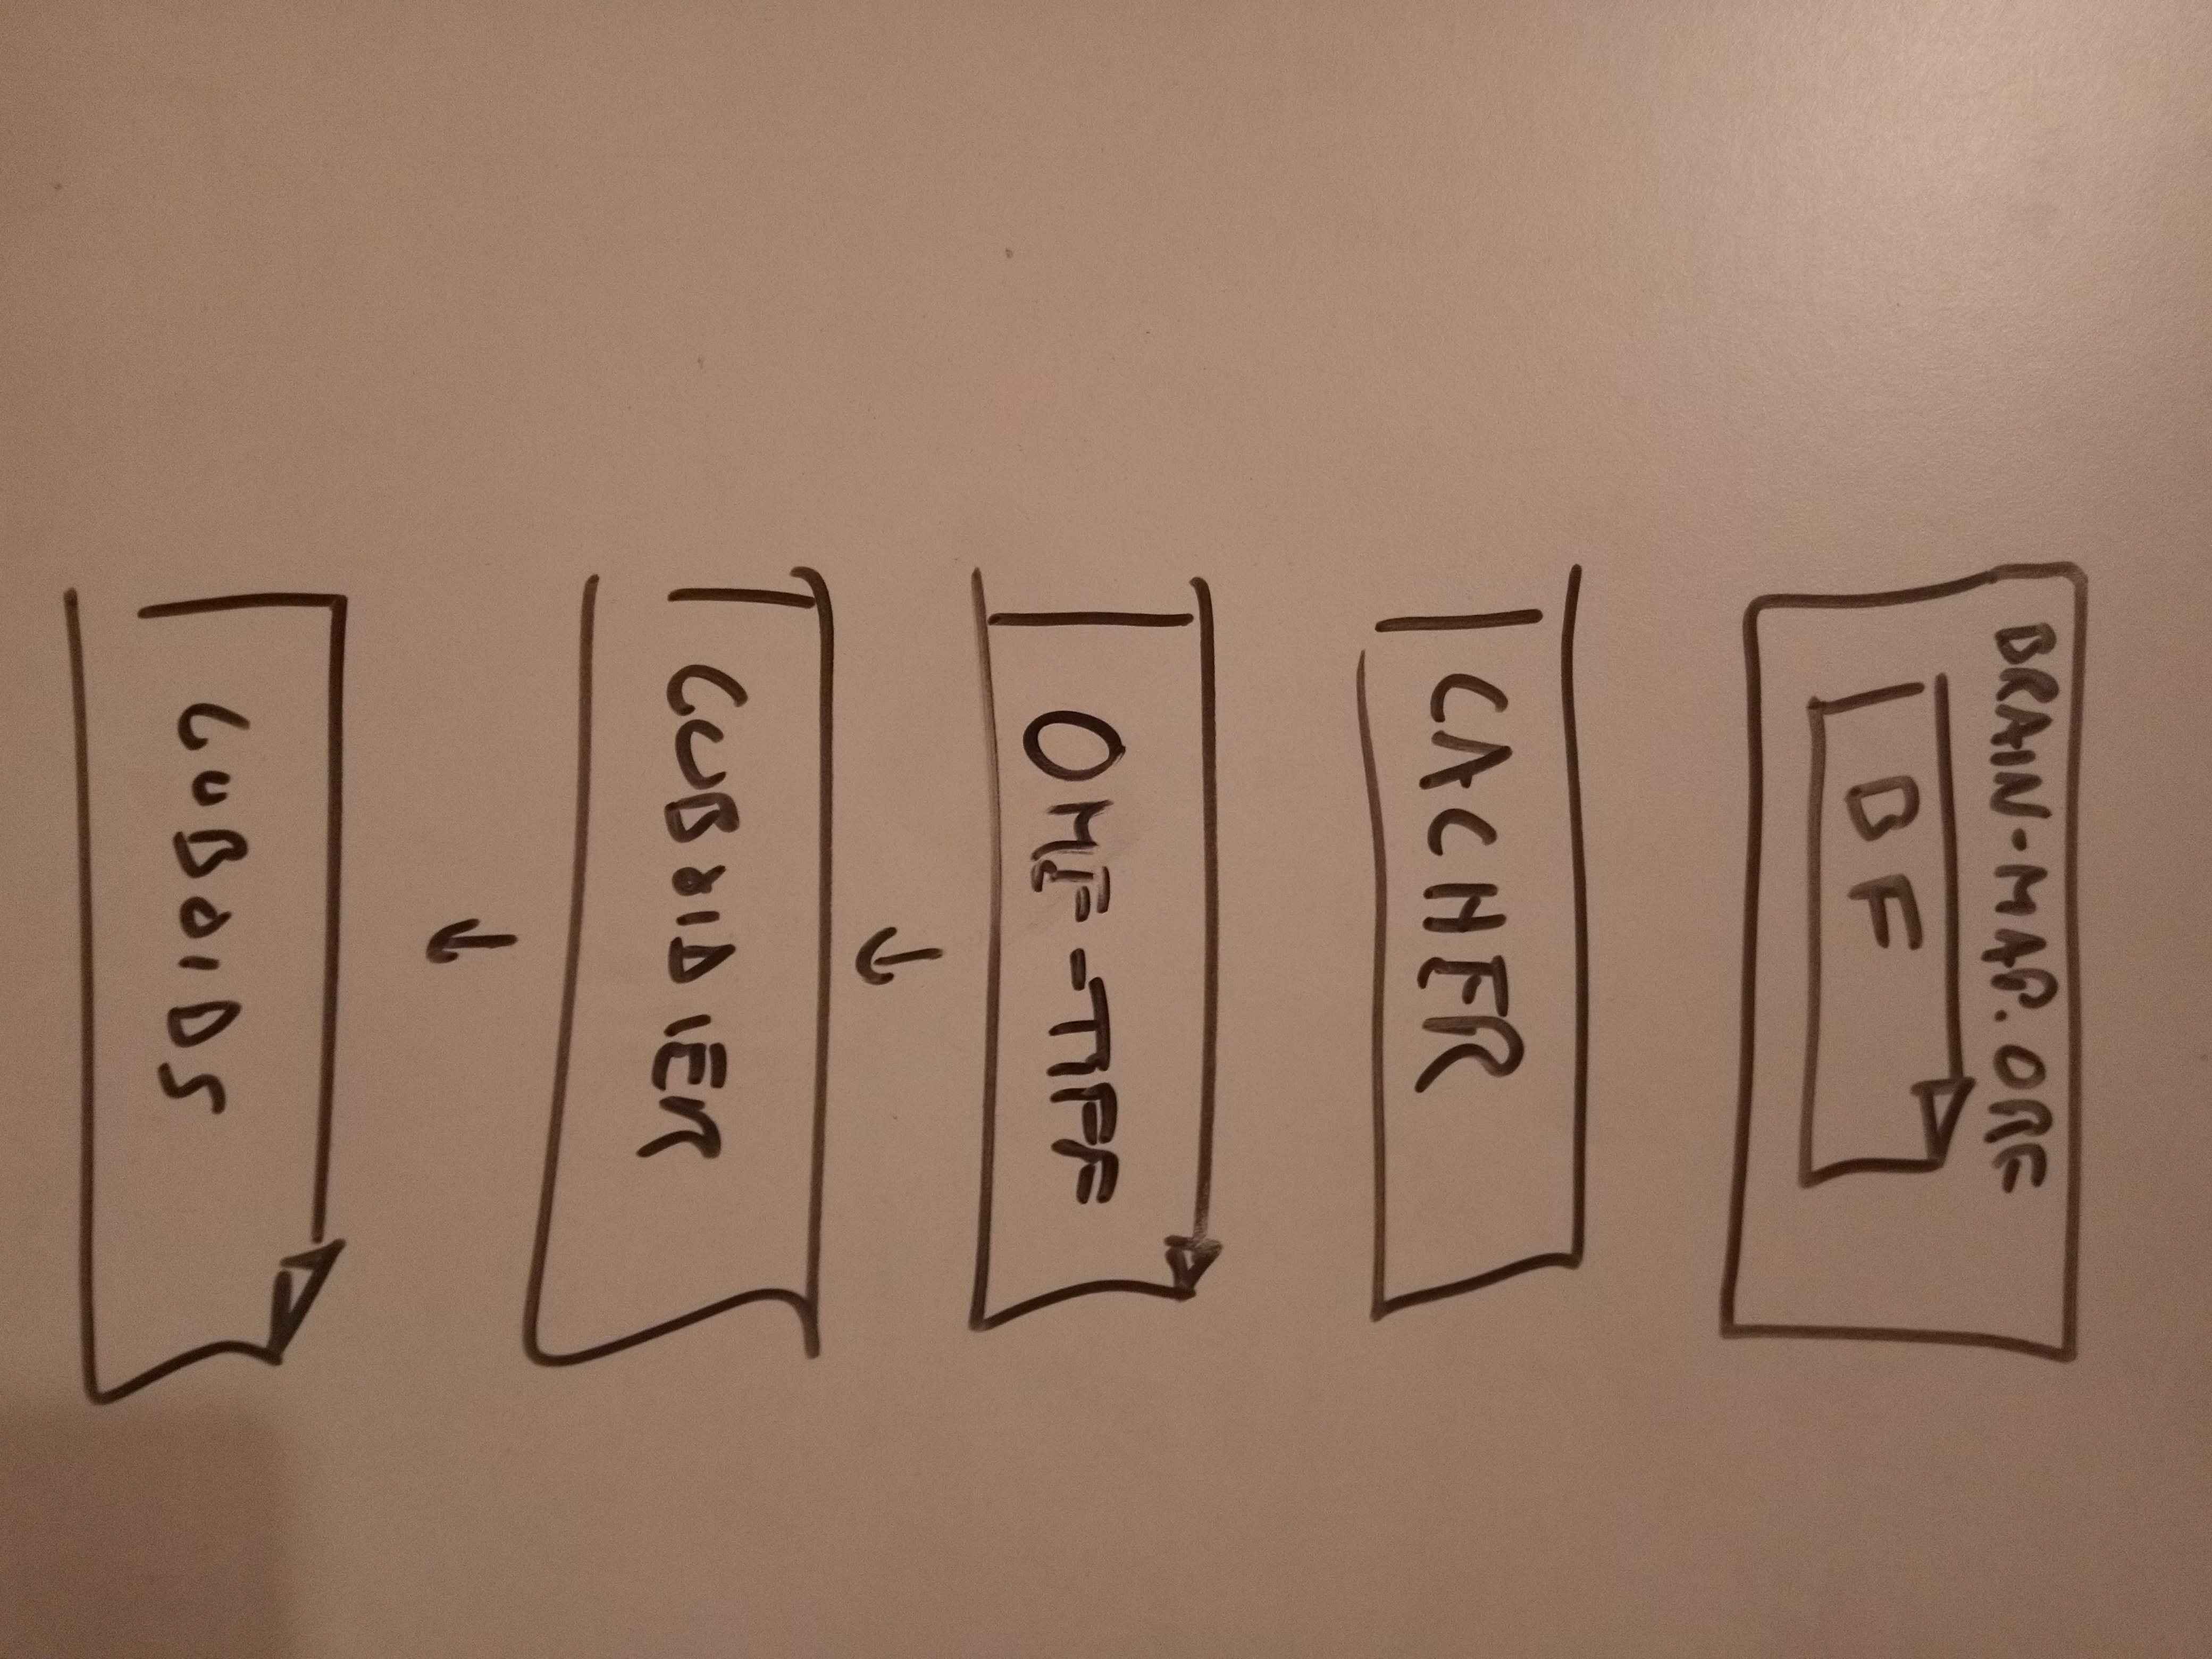 BRAIN-MAP.ORG
BF
CACHER
OME-TIFF
CUBOIDIER
CUBOIDS